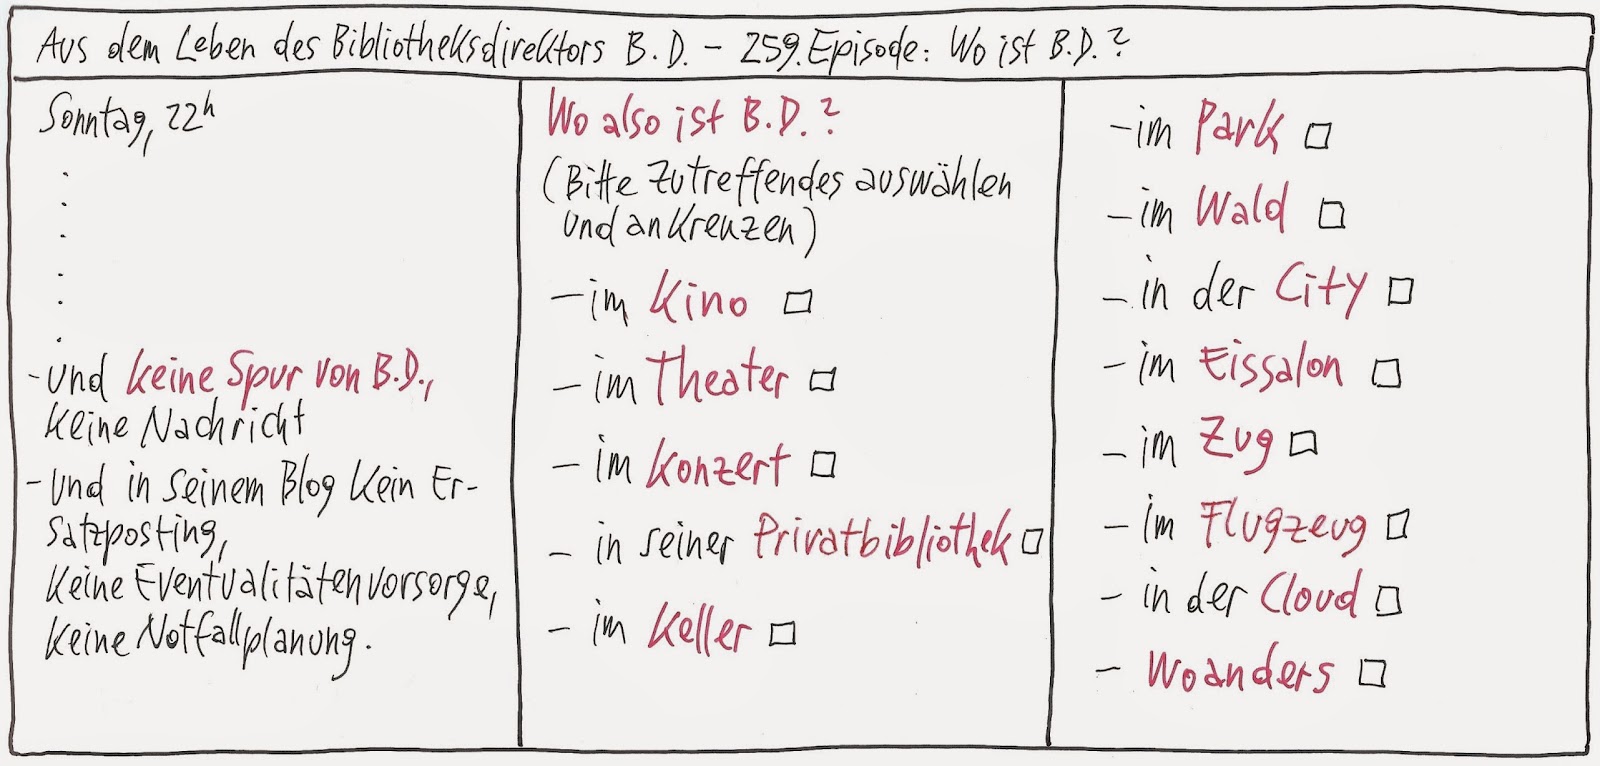 Aus dem Leben des Bibliotheksdirektors B.D. – 259. Episode: Wo ist B.D.?
Sonntag, 22h
.
.
.
.
.
.
- und keine Spur von B.D.,
keine Nachricht
- und in seinem Blog kein Er-
satzposting,
keine Eventualitätenvorsorge,
keine Notfallplanung.
Wo also ist B.D.?
(Bitte Zutreffendes auswählen
und ankreuzen)
– im Kino □
– im Theater □
– im Konzert □
– in seiner Privatbibliothek □
– im Keller □
– im Park □
– im Wald □
– in der City □
– im Eissalon □
– im Zug □
– im Flugzeug □
– in der Cloud □
– Woanders □